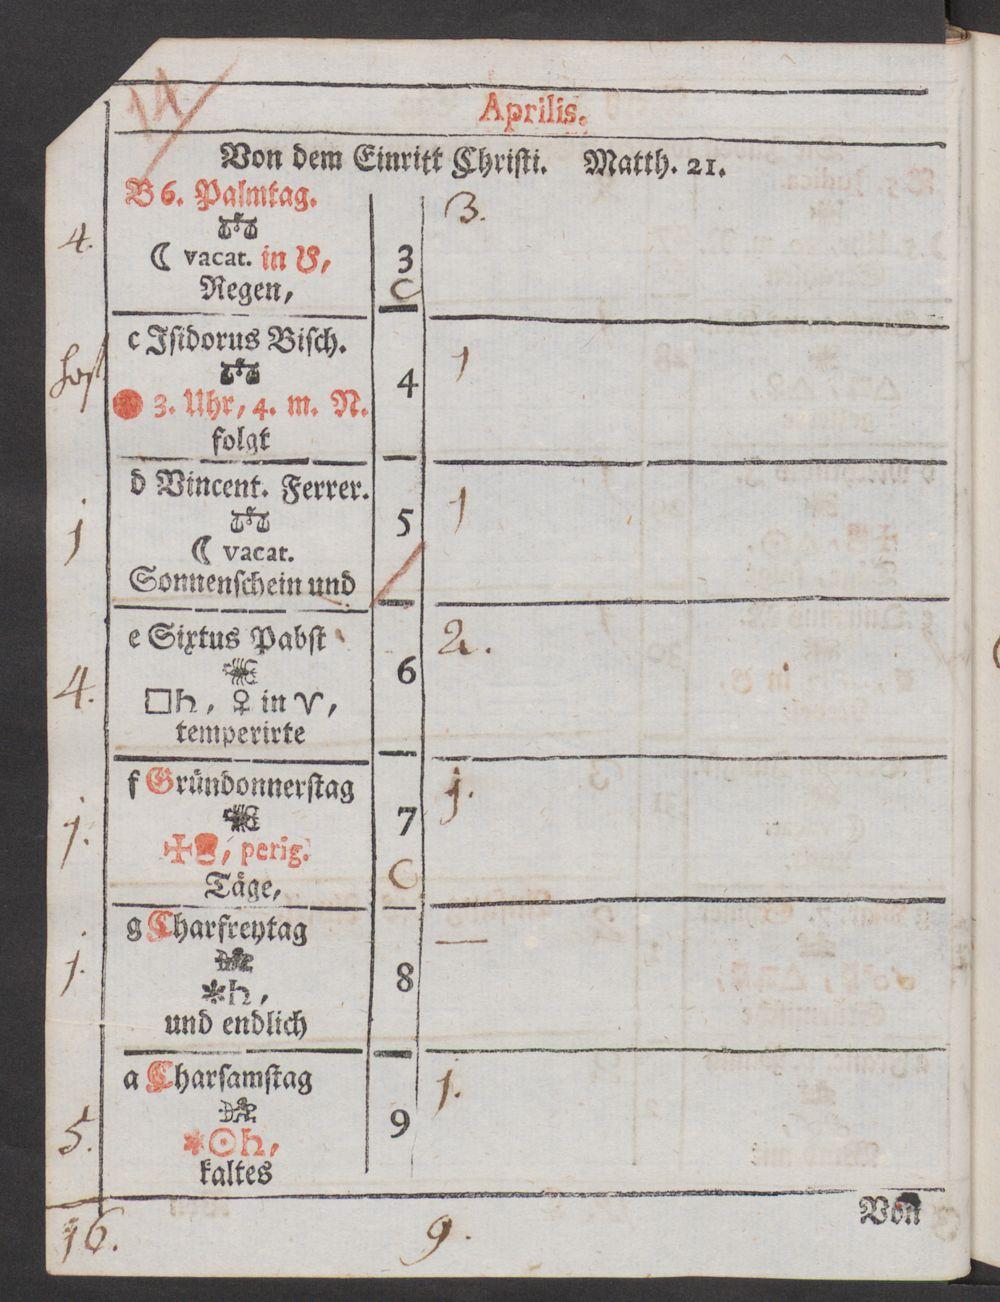 14
Aprilis.
Von dem Einritt Christi. Matth. 21.
B 6. Palmtag.
4.
☾ vacat. in ♉,
Regen,
3
C
3.
c Isidorus Bisch.
3. Uhr, 4. m. N.
folgt
4
1
d Vincent. Ferrer.
1
☾ vacat.
Sonnenschein und
5
1
e Sixtus Pabst
4.
□♄, ♀ in ♈,
temperirte
6
2.
f Gründonnerstag
1.
perig.
Täge,
7
C
1.
g Charfreytag
1.
✶♄,
und endlich
8
—
a Charsamstag
5.
✶☉♄,
kaltes
9
1.
Von
16.
9.